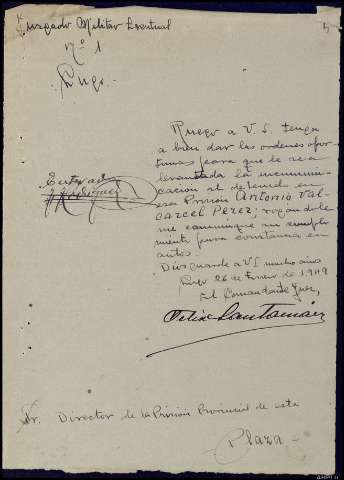 Juzgado Militar Eventual
Nº 1
Lugo.
Ruego a V. S. tenga
a bien dar las ordenes opor-
tunas para que le sea
levantada la incomuni-
cación al detenido en
esa Prisión Antonio Val-
carcel Perez; rogandole
me comunique su cumpli-
miento para constancia en
autos.
Dios guarde a V.S. muchos años
Lugo 26 de Enero de 1949
El Comandante Juez,
Enterado
Sr. Director de la Prisión Provincial de esta
Plaza.-